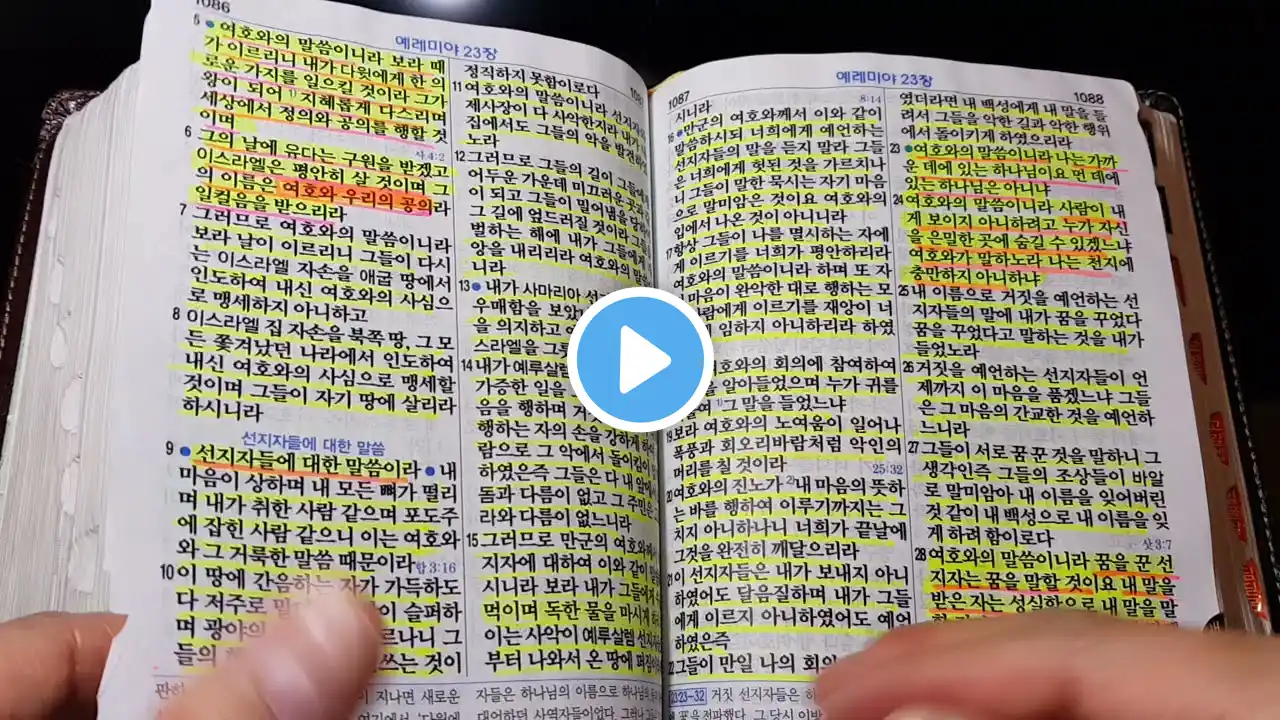 1086
예레미야 23장
5 여호와의 말씀이니라 보라 때
가 이르리니 내가 다윗에게 한 의
로운 가지를 일으킬 것이라 그가
왕이 되어 1)지혜롭게 다스리며
세상에서 정의와 공의를 행할 것
이며
사.4:2
6 그의 날에 유다는 구원을 받겠고
이스라엘은 평안히 살 것이며 그
의 이름은 여호와 우리의 공의라
일컬음을 받으리라
7 그러므로 여호와의 말씀이니라
보라 날이 이르리니 그들이 다시
는 이스라엘 자손을 애굽 땅에서
인도하여 내신 여호와의 사심으
로 맹세하지 아니하고
8 이스라엘 집 자손을 북쪽 땅, 그 모
든 쫓겨났던 나라에서 인도하여
내신 여호와의 사심으로 맹세할
것이며 그들이 자기 땅에 살리라
하시니라
선지자들에 대한 말씀
9 선지자들에 대한 말씀이라 내
마음이 상하며 내 모든 뼈가 떨리
며 내가 취한 사람 같으며 포도주
에 잡힌 사람 같으니 이는 여호와
와 그 거룩한 말씀 때문이라
합 3:16
10 이 땅에 간음하는 자가 가득하도
다 저주로 이 슬퍼하
며 광야의 르나니 그
들의 쓰는 것이
정직하지 못함이로다
11 여호와의 말씀이니라 선지자와
제사장이 다 사악한지라 내가
집에서도 그들의 악을 발견하
노라
12 그러므로 그들의 길이 그들에게
어두운 가운데 미끄러운 곳과
이 되고 그들이 밀어냄을 당
그 길에 엎드러질 것이라 그들
벌하는 해에 내가 그들에게
앙을 내리리라 여호와의 말
니라
13 내가 사마리아 선
우매함을 보았
을 의지하고
스라엘을 그
14 내가 예루살렘
가증한 일을
음을 행하며 거
행하는 자의 손을 강하게 하
람으로 그 악에서 돌이킴이
하였은즉 그들은 다 내 앞에서
돔과 다름이 없고 그 주민은
라와 다름이 없느니라
15 그러므로 만군의 여호와께서
지자에 대하여 이와 같이 말씀
시니라 보라 내가 그들에게
먹이며 독한 물을 마시게 하
이는 사악이 예루살렘 선지자들
부터 나와서 온 땅에 퍼짐이
1087
예레미야 23장
1088
시니라
8:14
16 만군의 여호와께서 이와 같이
말씀하시되 너희에게 예언하는
선지자들의 말을 듣지 말라 그들
은 너희에게 헛된 것을 가르치나
니 그들이 말한 묵시는 자기 마음
으로 말미암은 것이요 여호와의
입에서 나온 것이 아니니라
17 항상 그들이 나를 멸시하는 자에
게 이르기를 너희가 평안하리라
여호와의 말씀이니라 하며 또 자
기 마음이 완악한 대로 행하는 모
사람에게 이르기를 재앙이 너
임하지 아니하리라 하였
여호와의 회의에 참여하여
을 알아들었으며 누가 귀를
여 1)그 말을 들었느냐
19 보라 여호와의 노여움이 일어나
폭풍과 회오리바람처럼 악인의
머리를 칠 것이라
25:32
20 여호와의 진노가 2)내 마음의 뜻하
는 바를 행하여 이루기까지는 그
치지 아니하나니 너희가 끝날에
그것을 완전히 깨달으리라
21 이 선지자들은 내가 보내지 아니
하였어도 달음질하며 내가 그들
에게 이르지 아니하였어도 예언
하였은즉
22 그들이 만일 나의 회의
였더라면 내 백성에게 내 말을 들
려서 그들을 악한 길과 악한 행위
에서 돌이키게 하였으리라
23 여호와의 말씀이니라 나는 가까
운 데에 있는 하나님이요 먼 데에
있는 하나님은 아니냐
24 여호와의 말씀이니라 사람이 내
게 보이지 아니하려고 누가 자신
을 은밀한 곳에 숨길 수 있겠느냐
여호와가 말하노라 나는 천지에
충만하지 아니하냐
25 내 이름으로 거짓을 예언하는 선
지자들의 말에 내가 꿈을 꾸었다
꿈을 꾸었다고 말하는 것을 내가
들었노라
26 거짓을 예언하는 선지자들이 언
제까지 이 마음을 품겠느냐 그들
은 그 마음의 간교한 것을 예언하
느니라
27 그들이 서로 꿈 꾼 것을 말하니 그
생각인즉 그들의 조상들이 바알
로 말미암아 내 이름을 잊어버린
것 같이 내 백성으로 내 이름을 잊
게 하려 함이로다
삿 3:7
28 여호와의 말씀이니라 꿈을 꾼 선
지자는 꿈을 말할 것이요 내 말을
받은 자는 성실함으로 내 말을 말
이 지나면 새로운
자들은 하나님의 이름으로
대언하던 사역자들이었다.
23:23-32 거짓 선지자들은
꿈을 전파했다. 그 당시 이방